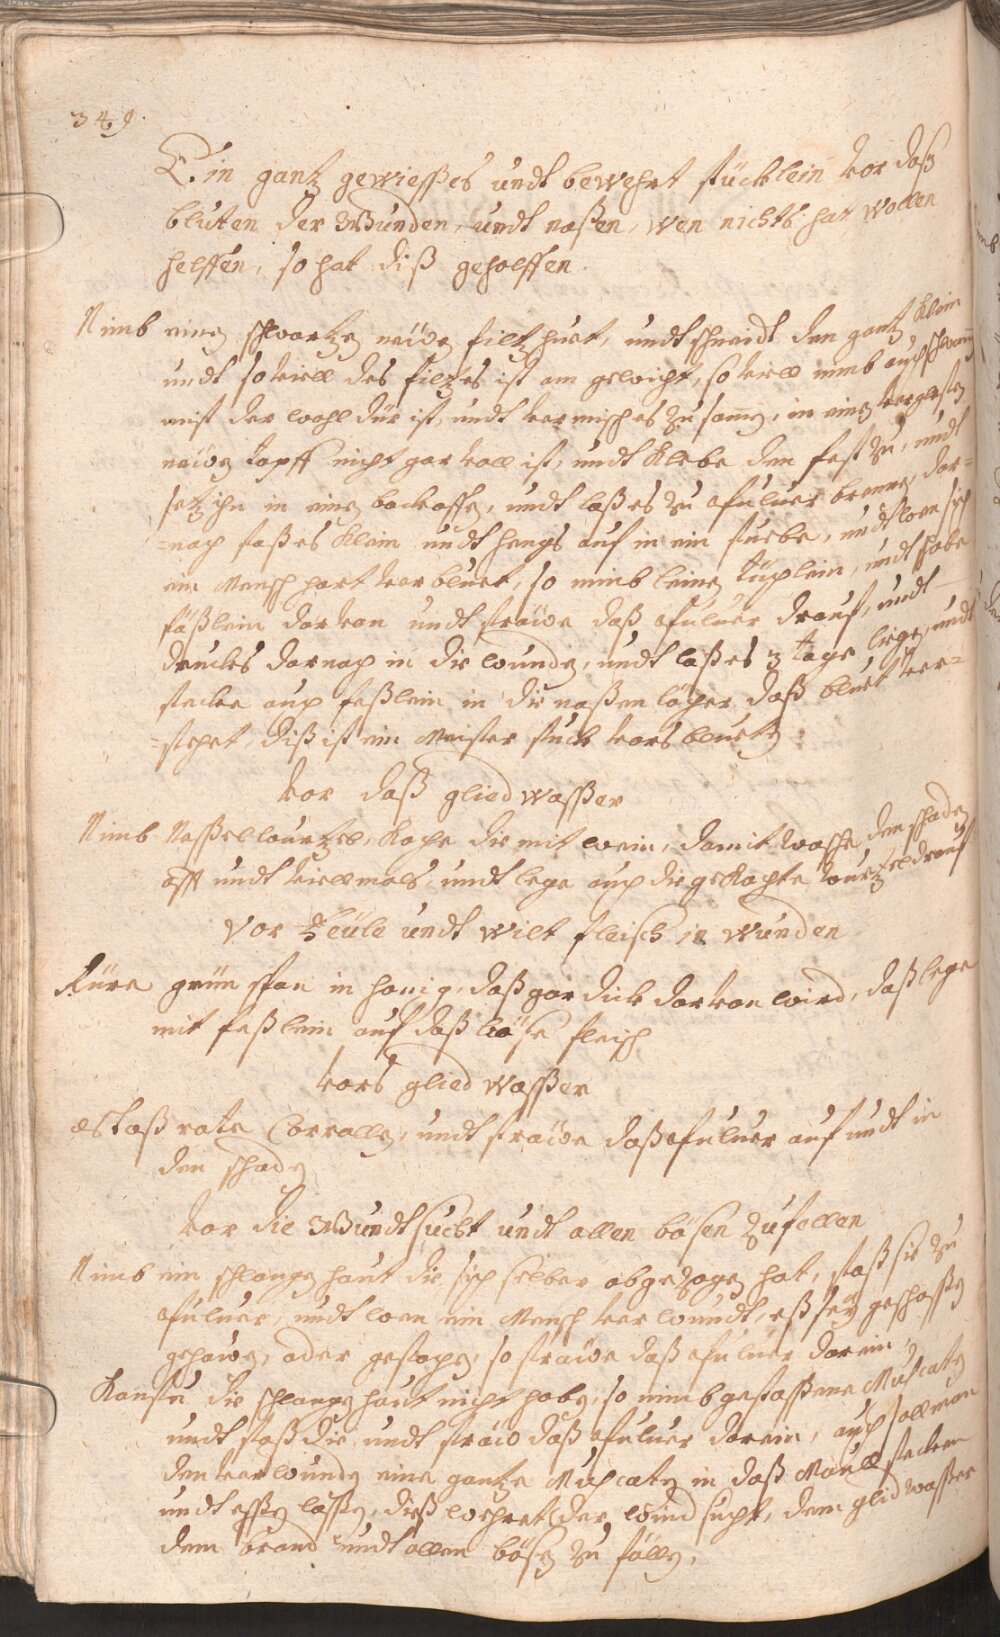 349.
Ein gantz gewießes undt bewehrt stücklein vor daß
bluten der Wunden, undt naßen, wen nichts hat wollen
helffen, so hat diß geholffen.
Nimb einen schwartzen neüen filtz huet, undt schneidt den gantz klein
undt so viell des filtzes ist am gewicht, so viell nimb auch
mist der wohl dür ist, undt vermisch es zu samen, in einen
neüen topff nicht gar voll ist, undt klebe den fest zu, undt
setz ihn in einen backoffen, undt laß es zu pfulver brennen, dar=
=nach stoß es klein undt hengs auf in ein stuebe, undt wen sich
ein Mensch hart verbluet, so nimb leinen tüchlein, undt schabe
fäßlein darvon undt sträwe daß pfulver drauf, undt
druckes darnach in die wunden, undt laß es 3 tage liegen, undt
stecke auch feßlein in die naßen löcher daß bluet ver=
=stehet, diß ist ein Meister stuck vors blueten
vor daß glied waßer
Nimb Neßell wurtzel, koche die mit wein, damit wasche den schaden
offt undt viellmals, undt lege auch die gekochte wurtzel drauf
Vor feüle undt wilt fleisch in wunden
Rüre grün span in honig, daß gar dick darvon wird, daß lege
mit feßlein auf daß böse fleisch
vors glied waßer
stoß rote Corrallen, undt sträwe daß pfulver auf undt in
den schaden
vor die Wundtsucht undt allen bösen zufellen
Nimb ein schlangen haut die sich selber abgezogen hat, stoß sie zu
pfulver, undt wen ein Mensch verwundt, eß seÿ geschoßen
gehawen, oder gestochen, so sträwe daß pfulver darein,
Kanstu die schlangen haut nicht haben, so nimb gestoßene Muscaten
undt stoß die, undt sträw daß pfulver darein, auch soll man
den verwunden eine gantze Muscaten in daß Maull stecken
undt eßen laßen, dieß wehret der wundsucht, dem glidwaßer
dem brand undt allen bösen zu fällen,